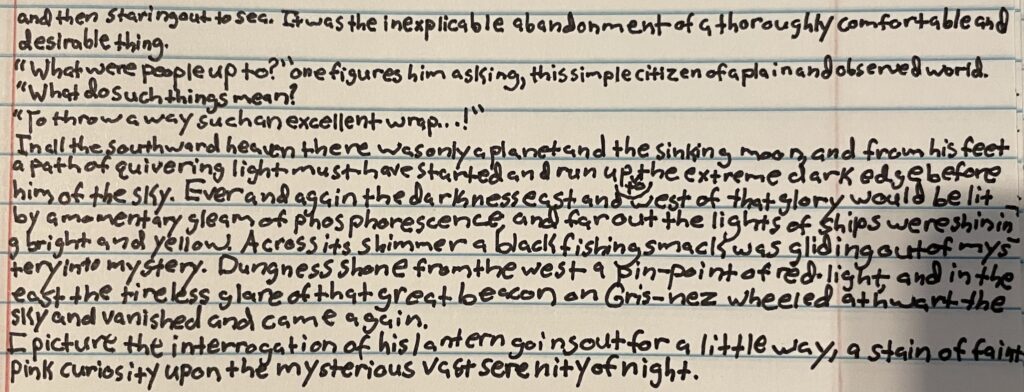 and then staring out to sea. It was the inexplicable abandonment of a thoroughly comfortable and
desirable thing.
"What were people up to?" one figures him asking, this simple citizen of a plain and observed world.
"What do such things mean?
"To throw away such an excellent wrap...!"
In all the southward heaven there was only a planet and the sinking moon, and from his feet
a path of quivering light must have started and run up to the extreme dark edge before
him of the sky. Ever and again the darkness east and west of that glory would be lit
by a momentary gleam of phosphorescence, and far out the lights of ships were shinin
g bright and yellow. Across its shimmer a black fishing smack was gliding out of mys
tery into mystery. Dungness shone from the west a pin-point of red light, and in the
east the tireless glare of that great beacon on Gris-nez wheeled athwart the
sky and vanished and came again.
I picture the interrogation of his lantern going out for a little way, a stain of faint
pink curiosity upon the mysterious vast serenity of night.